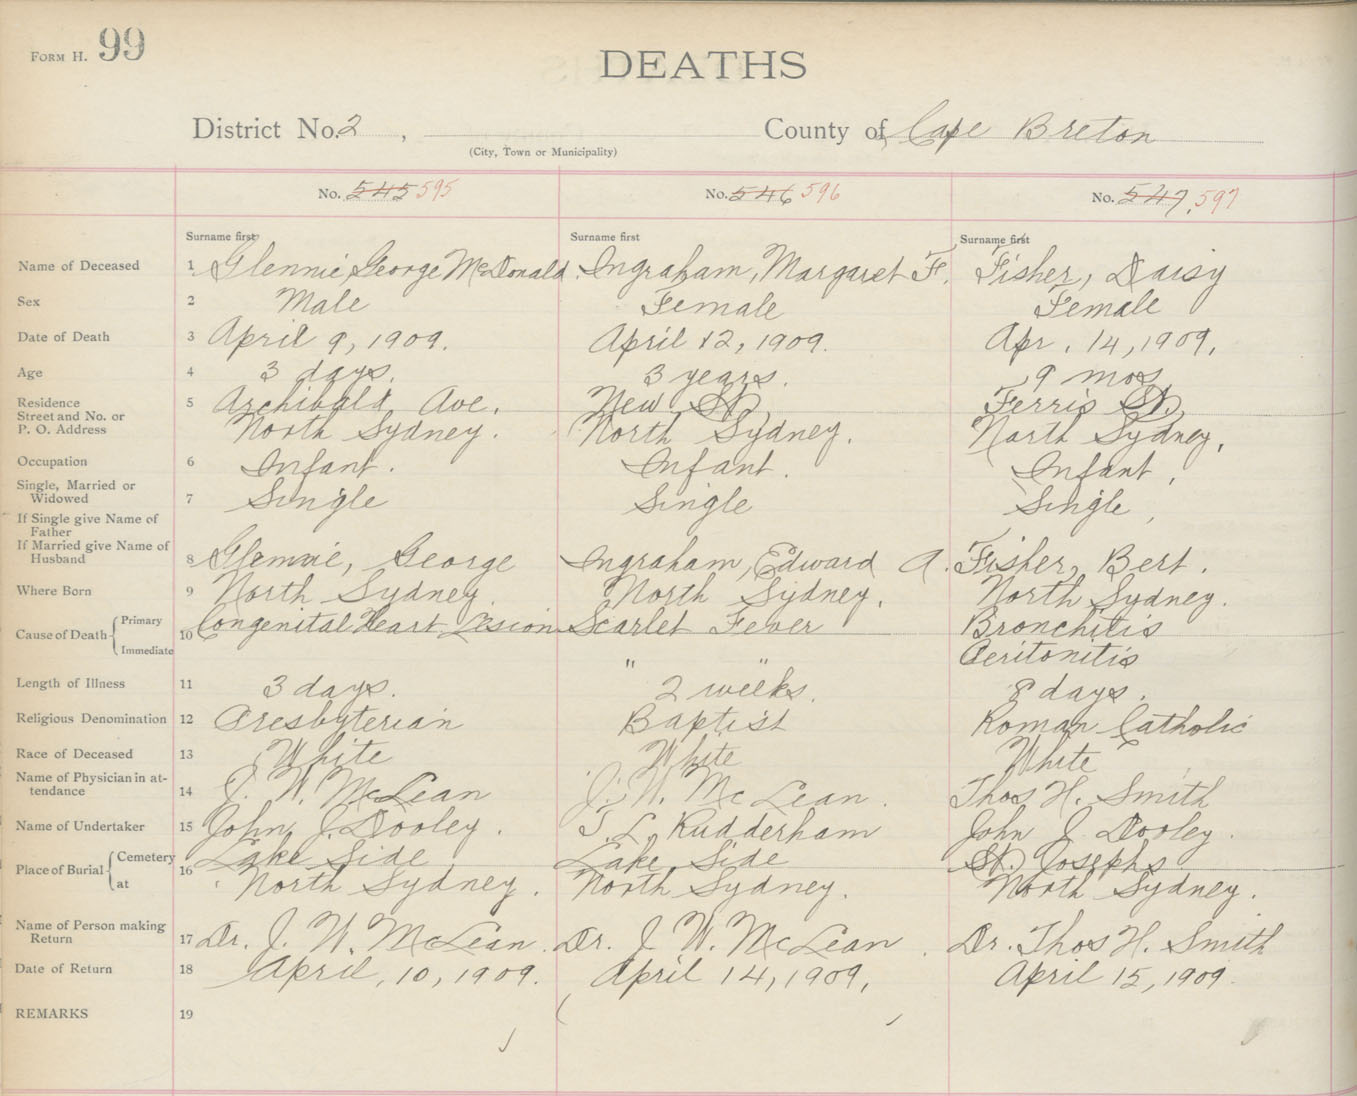 FORM H. 99
DEATHS
District No. 2 , County of Cape Breton
(City, Town or Municipality)
No. 545 595 No. 546 596 No. 547. 597
Surname first Surname first Surname first
Name of Deceased 1 Glennie, George McDonald. Ingraham, Margaret F. Fisher, Daisy
Sex 2 Male Female Female
Date of Death 3 April 9, 1909. April 12, 1909. Apr. 14, 1909.
Age 4 3 days. 3 years. 9 mos
Residence 5 Archibald Ave. New St, Ferris St,
Street and No. or
P. O. Address North Sydney. North Sydney. North Sydney.
Occupation 6 Infant. Infant. Infant,
Single, Married or
Widowed 7 Single Single Single,
If Single give Name of
Father
If Married give Name of
Husband 8 Glennie, George Ingraham, Edward A. Fisher, Bert.
Where Born 9 North Sydney. North Sydney. North Sydney.
Cause of Death Primary 10 Congenital Heart Lesion Scarlet Fever Bronchitis
Immediate " " Peritonitis
Length of Illness 11 3 days. 2 weeks. 8 days.
Religious Denomination 12 Presbyterian Baptist Roman Catholic
Race of Deceased 13 White White White
Name of Physician in at-
tendance 14 J. W. McLean J. W. McLean. Thos H. Smith
Name of Undertaker 15 John J. Dooley. T. L. Rudderham John J. Dooley.
Place of Burial Cemetery 16 Lake Side Lake Side St. Josephs
at North Sydney. North Sydney. North Sydney.
Name of Person making
Return 17 Dr. J. W. McLean. Dr. J. W. McLean. Dr. Thos H. Smith
Date of Return 18 April, 10, 1909. April 14, 1909, April 15, 1909.
REMARKS 19